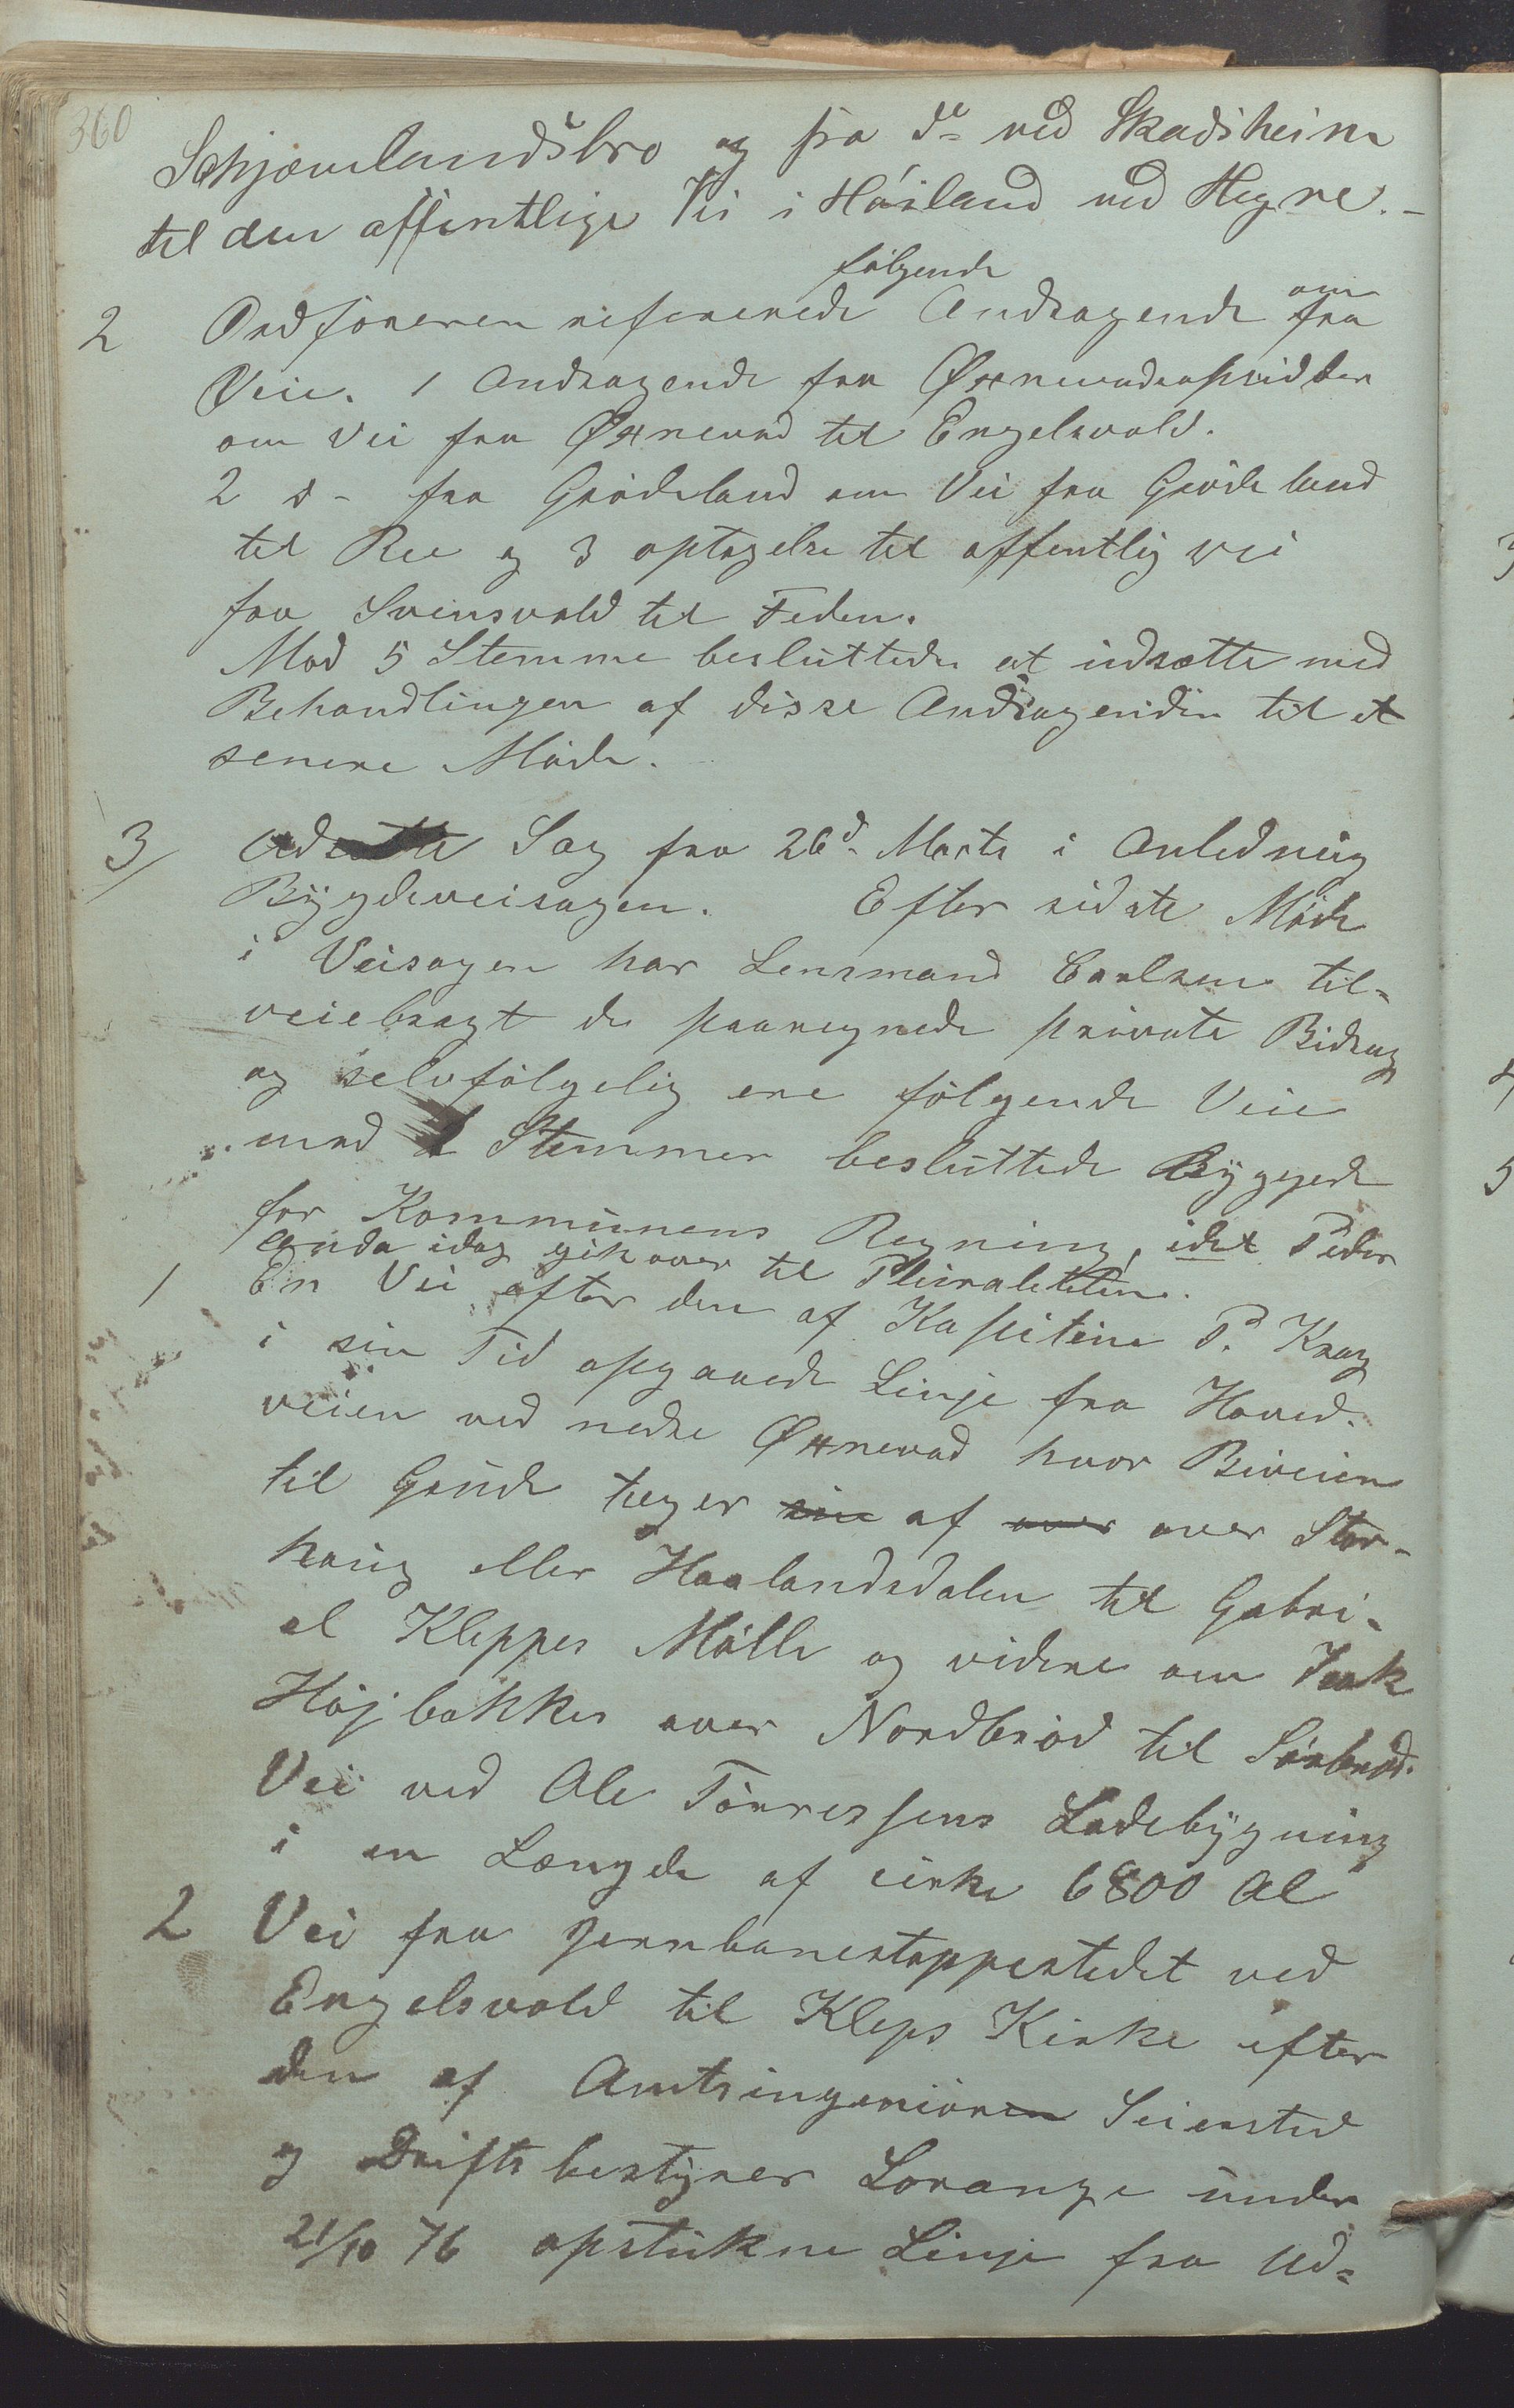 360
Schjævelandsbro og fra do ved Skadsheim
til den offentlige Vei i Høiland ved Hegre.-
følgende
2 Ordføreren refererede Andragende om fra
Veie. 1 Andragende fra Øxnevadsopsidder
om Vei fra Øxnevad til Engelsvold.
2 d- fra Grødeland om Vei fra Grødeland
til Ree og 3 optagelse til offentlig vei
fra Svensvold til Feden.
Mod 5 Stemme besluttedes at udsætte med
Behandlingen af disse Andragenden til et
senere Møde.
3/ Sag fra 26d. Marts i Anledning
Bygdeveisagen. Efter sidste Møde
i Veisagen har Lensmand Carlsen til-
veiebragt de paaregnede private Bidrag
og selvfølgelig ere følgende Veie
mod Stemmer besluttede Byggede
for Kommunens Regning, idet Peder
Anda idag gik over til Pluraliteten.
1 En Vei efter den af Kapiteine P. Krag
i sin Tid opgaaede Linje fra Hoved-
veien ved nedre Øxnevad hvor Biveien
til Grude tager sin af over over Stor-
haug eller Haalandsdalen til Gabri-
el Kleppes Mølle og videre om
Højbakkes over Nordbrød til Sørbrød
Vei ved Ole Tørressens Ladebygning
i en Længde af cirka 6800 Al
2 Vei fra Jernbanestoppestedet ved
Engelsvold til Kleps Kirke efter
den af Amtsingeniøren Seiersted
og Driftsbestyrer Lorange under
21/10 76 opstukne Linje fra Ud-